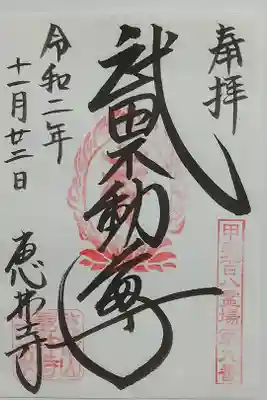 奉拝
甲斐百八霊場第九番
武田不動尊
令和二年
十一月廿二日
恵林寺